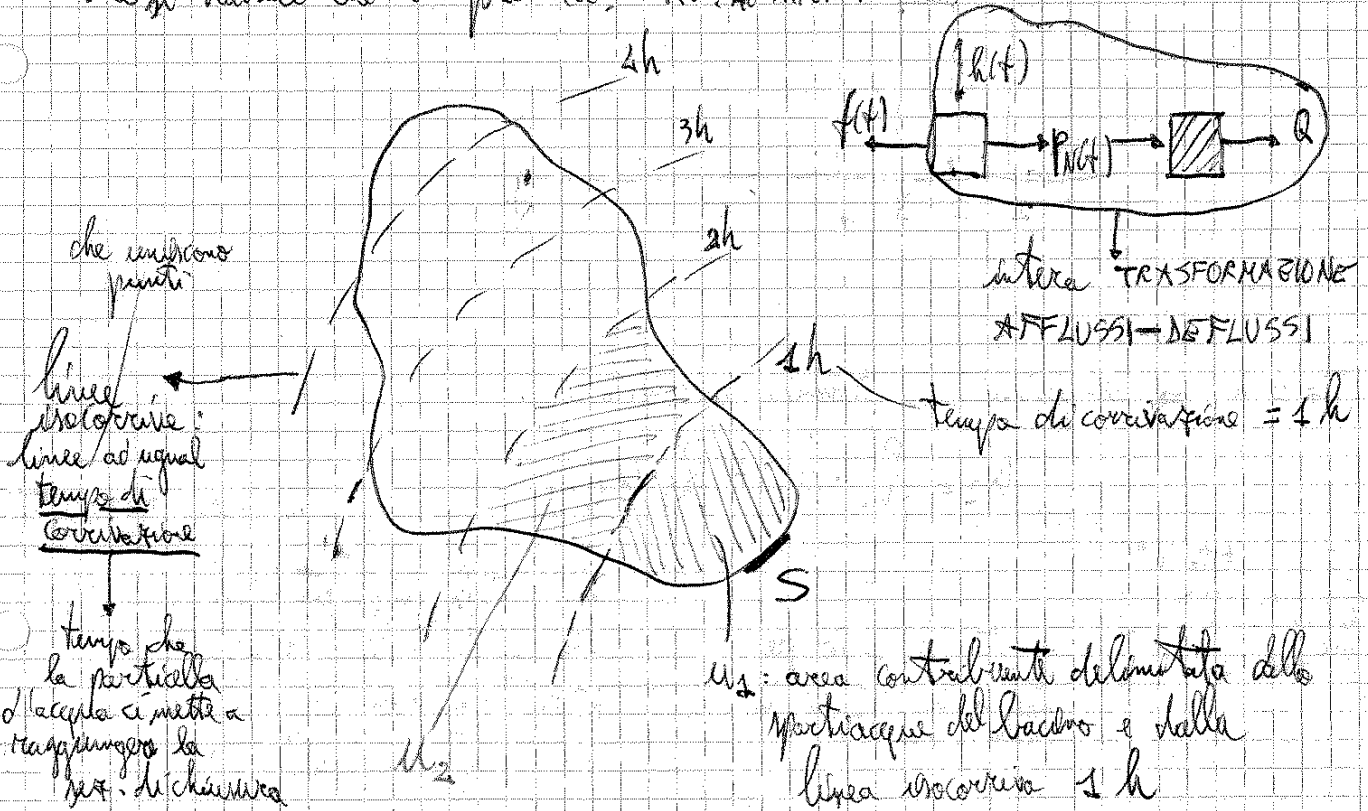 4h
3h
2h
1h
h(t)
f(t)
PN(t)
Q
intera TRASFORMAZIONE
AFFLUSSI-DEFLUSSI
tempo di corrivazione = 1h
che uniscono
punti
linee
isocorrive:
linee ad ugual
tempo di
corrivazione
tempo che
la particella
d'acqua ci mette a
raggiungere la
sez. di chiusura
S
u2
u1: area contribuente delimitata dallo
spartiacque del bacino e dalla
linea isocorriva 1h